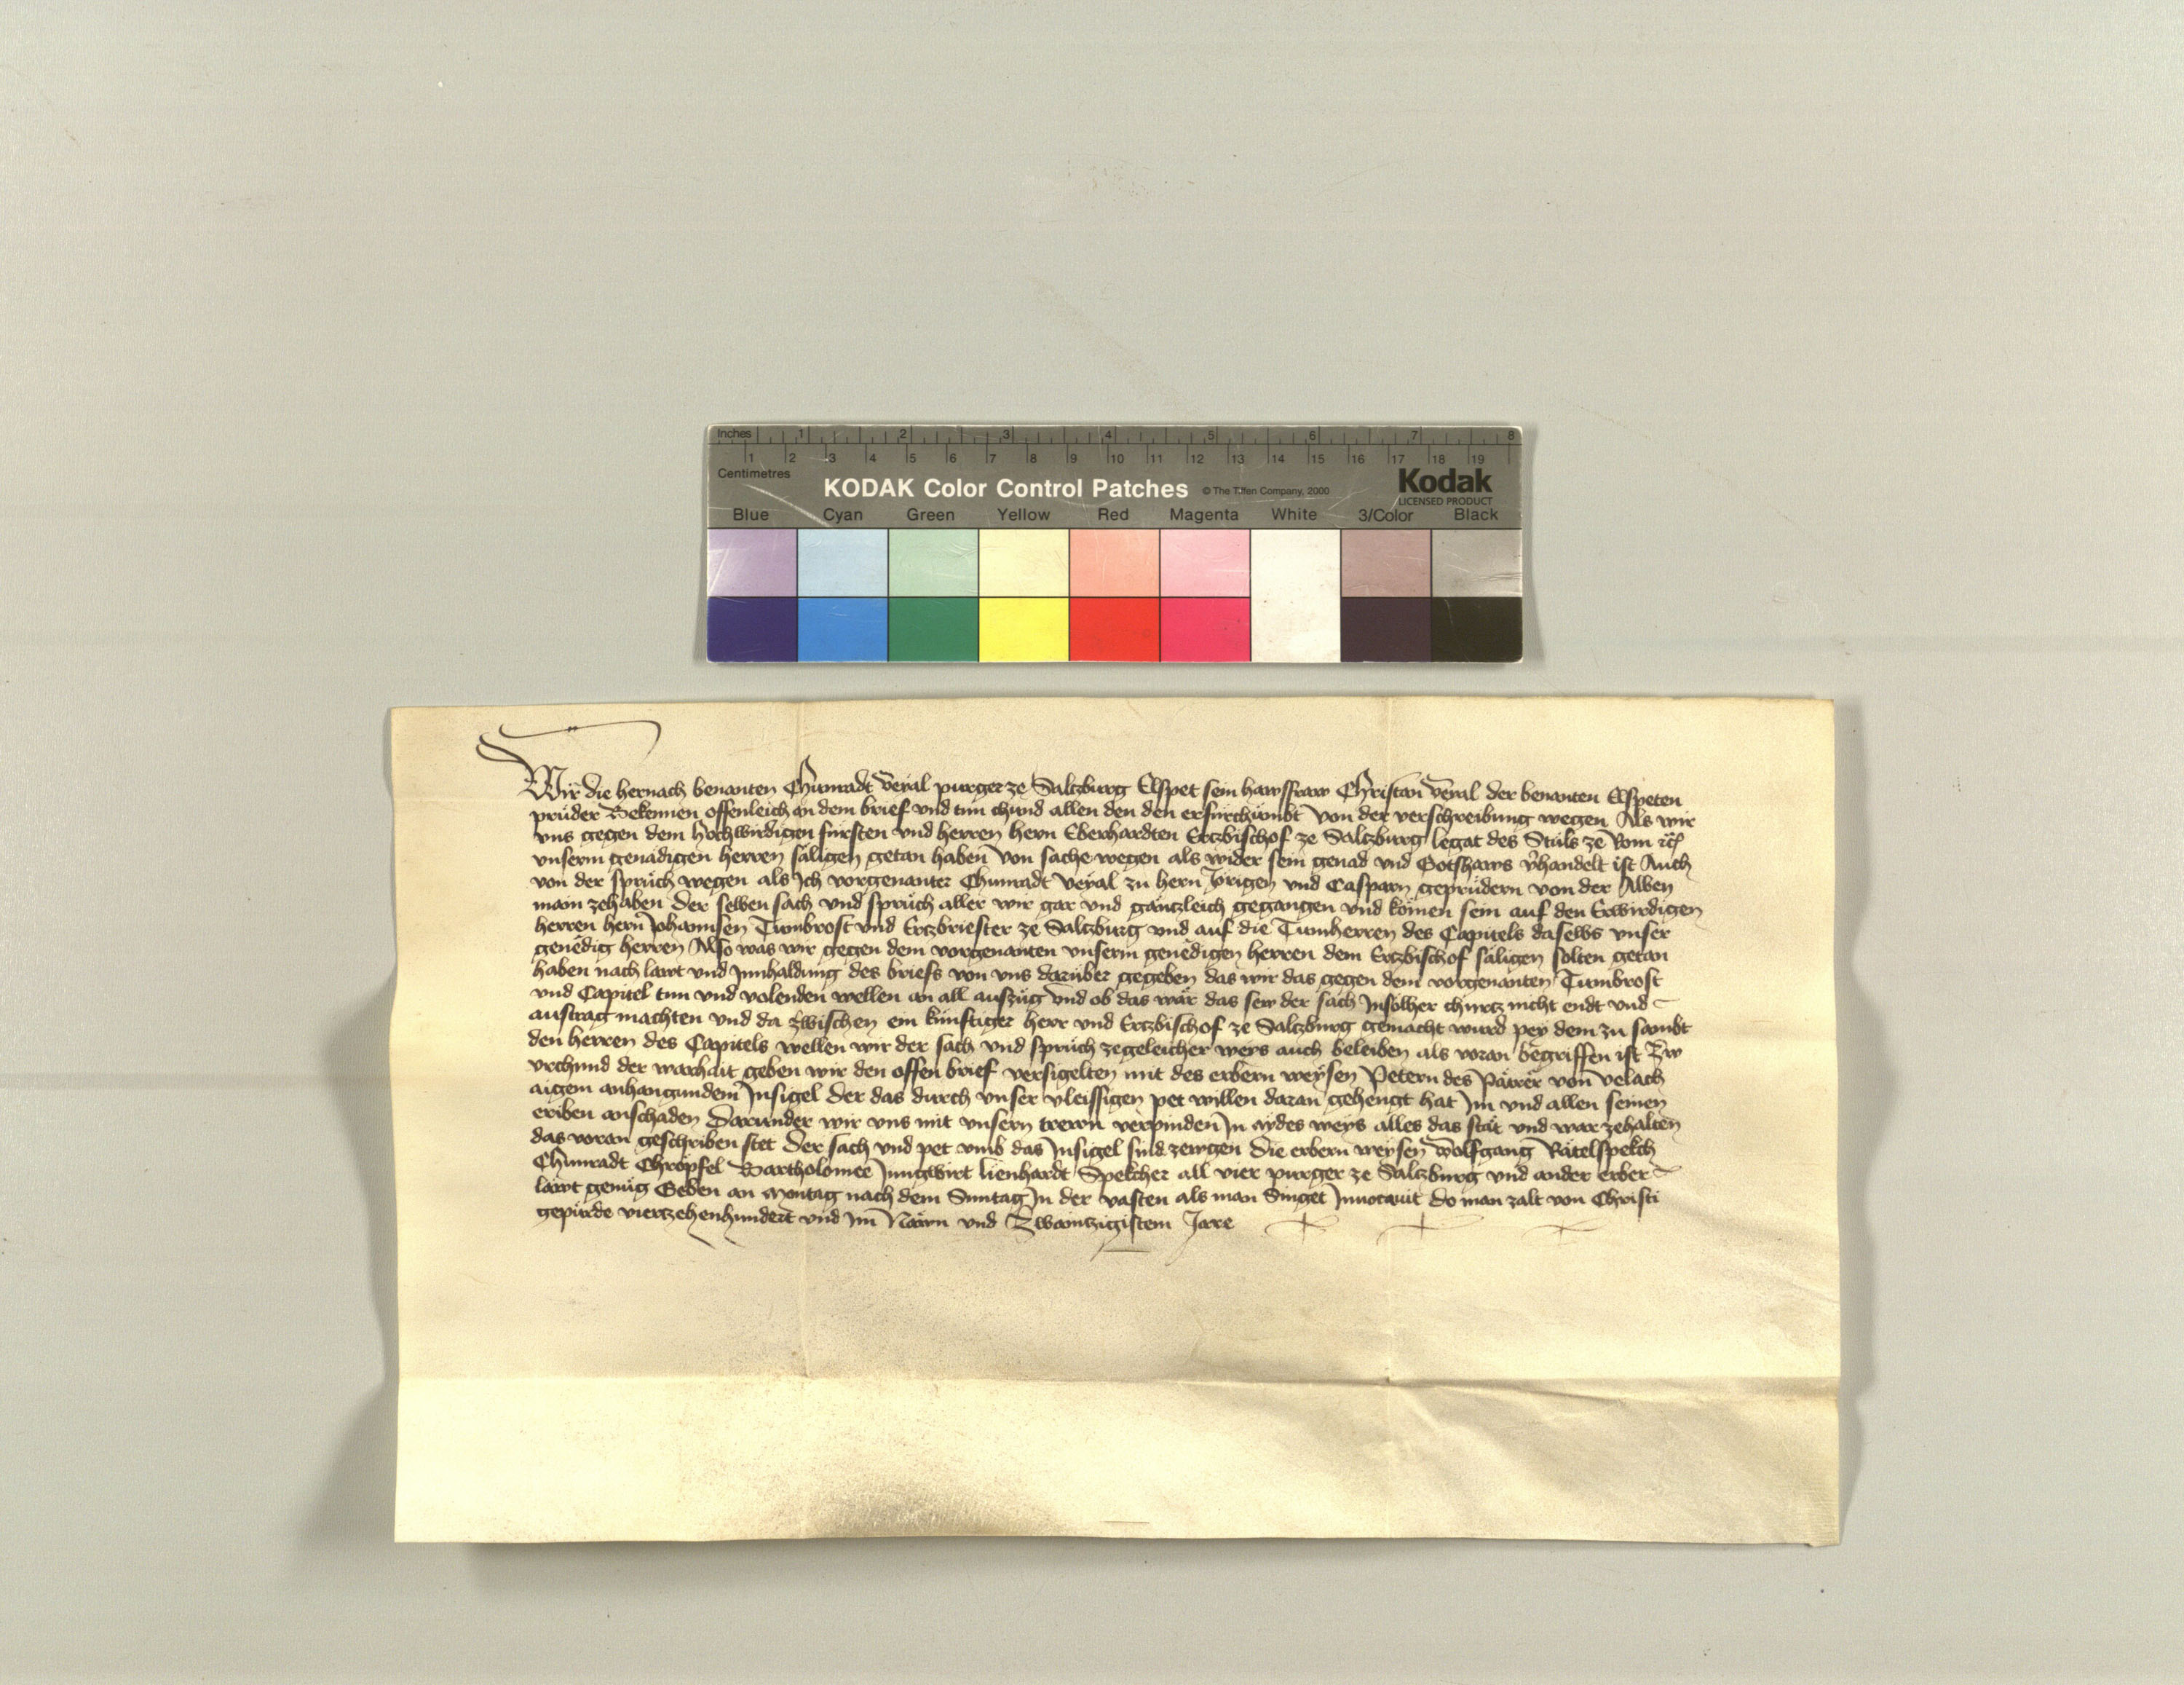 Inches 1 2 3 4 5 6 7 8
1 2 3 4 5 6 7 8 9 10 11 12 13 14 15 16 17 18 19
Centimetres
KODAK Color Control Patches © The Tiffen Company, 2000 Kodak
LICENSED PRODUCT
Blue Cyan Green Yellow Red Magenta White 3/Color Black
Wir die hernach benanten Chunradt Veyal purger ze Saltzburg Elspet sein hawsfraw Christan der benanten Elspeten
prüder Bekennen offenleich an dem brief vnd tun chund allen den den er fürchümbt Von der verschreibung wegen Als wir
vns gegen dem hochwirdigen fürsten vnd herren hern Eberhardten Ertzbischof ze Saltzburg legat des Stuls ze Rom
vnserm genädigen herren säligen getan haben von sache wegen als wider sein genad vnd Gotshaws v̄handelt ist Auch
von der sprüch wegen als Ich vorgenanter Chunradt Veyal zu hern Jörigen vnd Casparn geprüdern von der Alben
main zehaben Der selben sach vnd sprüch aller wir gar vnd gäntzleich gegangen vnd kömen sein auf den Erwirdigen
herren hern Johannsen Tumbrost vnd Ertzbriester ze Saltzburg vnd auf die Tumherren des Capitels daselbs vnser
genëdig herren Also was wir gegen dem vorgenanten vnserm genëdigen herren dem Ertzbischof säligen solten getan
haben nach lawt vnd Innhaldung des briefs von vns darüber gegeben das wir das gegen dem vorgenanten Tumbrost
vnd Capitel tun vnd volenden wellen an all auszüg Vnd ob das wär das sew der sach Insölher churtz nicht endt vnd
austrag machten vnd da zwischen ein künftiger herr vnd Ertzbischof ze Saltzburg gemacht würd pey dem zu sambt
den herren des Capitels wellen wir der sach vnd sprüch zegeleicher weys auch beleiben als voran begriffen ist Zw
vrchund der warhait geben wir den offen brief versigelten mit des erbern weysen Petern des von Velach
aigem anhangundem Insigel Der das durch vnser vleissigen pet willen daran gehengt hat Im vnd allen seinen
eriben an schaden Darunder wir vns mit vnsern trewn verpinden In aydes weys alles das stät vnd war zehalten
das voran geschriben stet Der sach vnd pet vmb das Insigel sind zewgen Die erbern weysen Wolfgang Rätelspekch
Chunradt Chröpfel Bartholomee Jungwirt lienhardt Spekcher all vier purger ze Saltzburg vnd ander erber
läwt genüg Geben an Montag nach dem Suntag In der vasten als man Singet Inuocauit do man zalt von Christi
gepürde viertzehenhundert vnd Im Näwn vnd Zwaintzigistem Jare